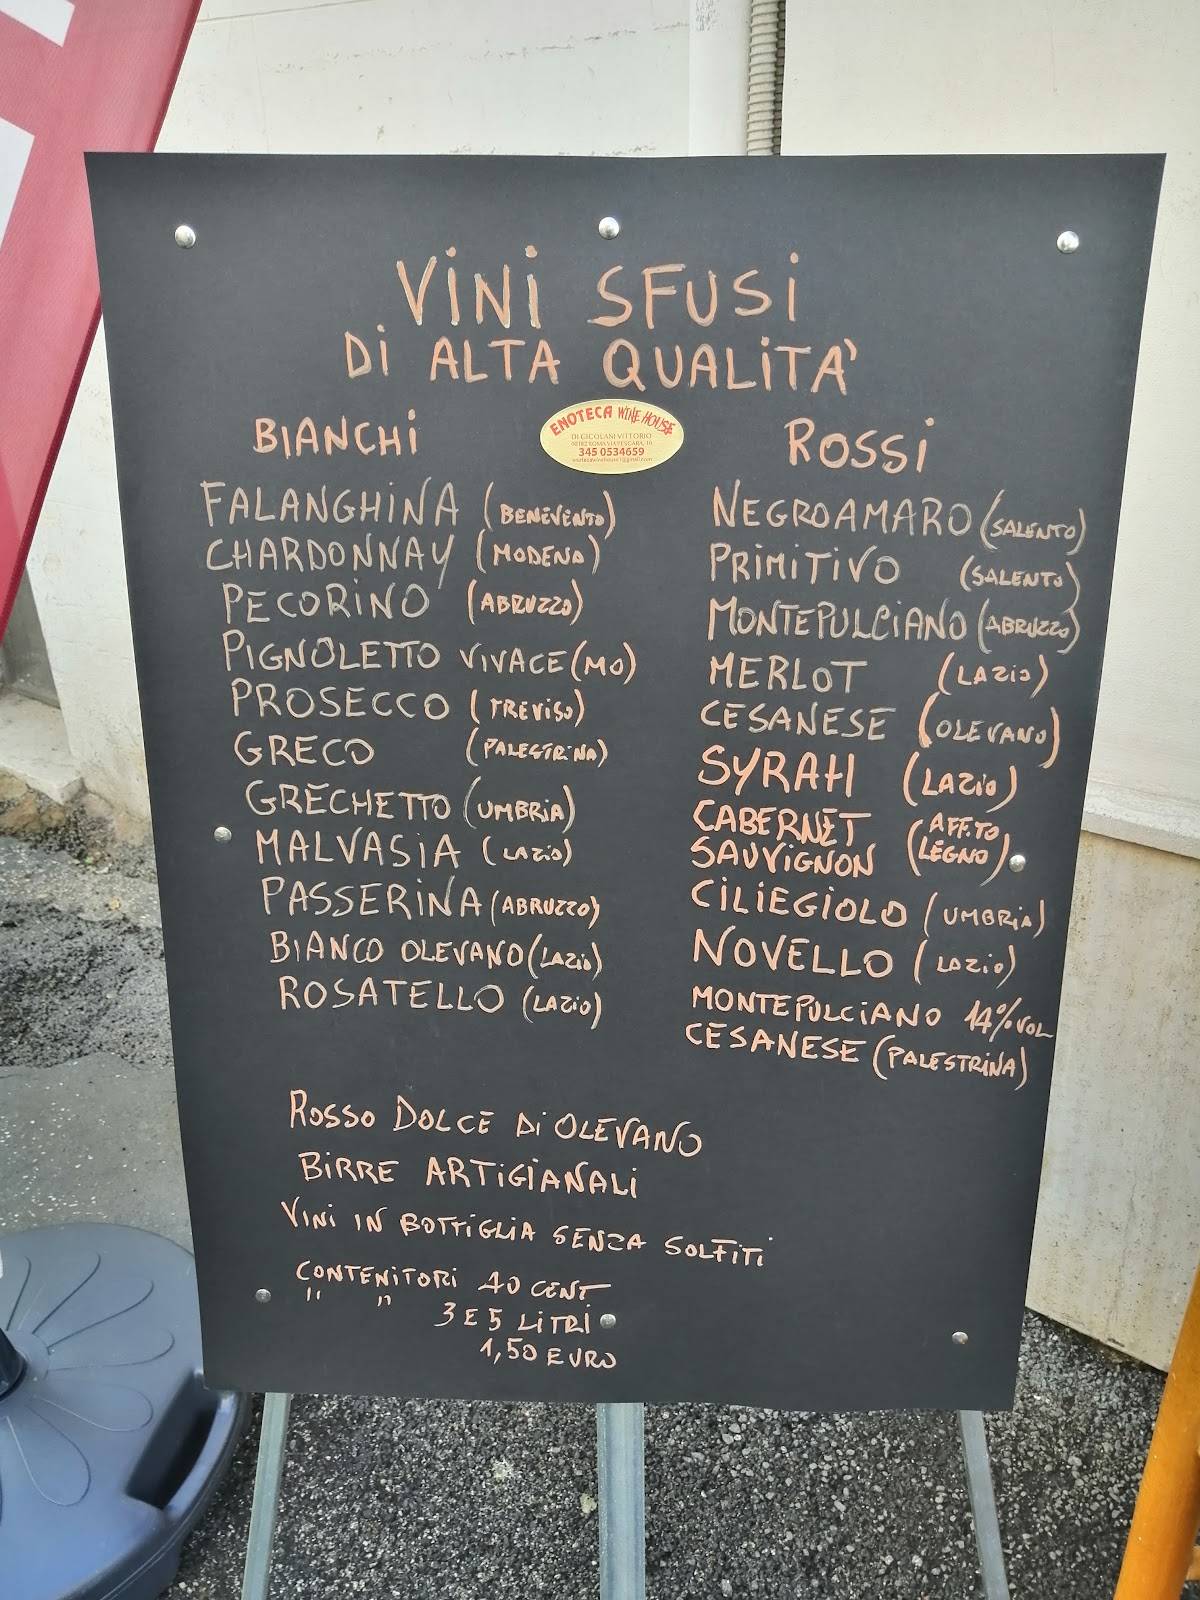 VINI SFUSI
DI ALTA QUALITA'
BIANCHI
ENOTECA WINE HOUSE
DI CICOLANI VITTORIO
00182 ROMA VIA PESCARA, 10
345 0534659
FALANGHINA (BENEVENTO)
CHARDONNAY (MODENA)
PECORINO (ABRUZZO)
PIGNOLETTO VIVACE (MO)
PROSECCO (TREVISO)
GRECO (PALESTRINA)
GRECHETTO (UMBRIA)
MALVASIA (LAZIO)
PASSERINA (ABRUZZO)
BIANCO OLEVANO (LAZIO)
ROSATELLO (LAZIO)
ROSSI
NEGROAMARO (SALENTO)
PRIMITIVO (SALENTO)
MONTEPULCIANO (ABRUZZO)
MERLOT (LAZIO)
CESANESE (OLEVANO)
SYRAH (LAZIO)
CABERNET (AFF.TO
SAUVIGNON LEGNO)
CILIEGIOLO (UMBRIA)
NOVELLO (LAZIO)
MONTEPULCIANO 14% VOL
CESANESE (PALESTRINA)
ROSSO DOLCE DI OLEVANO
BIRRE ARTIGIANALI
VINI IN BOTTIGLIA SENZA SOLFITI
CONTENITORI 40 CENT
" " 3 E 5 LITRI
1,50 EURO